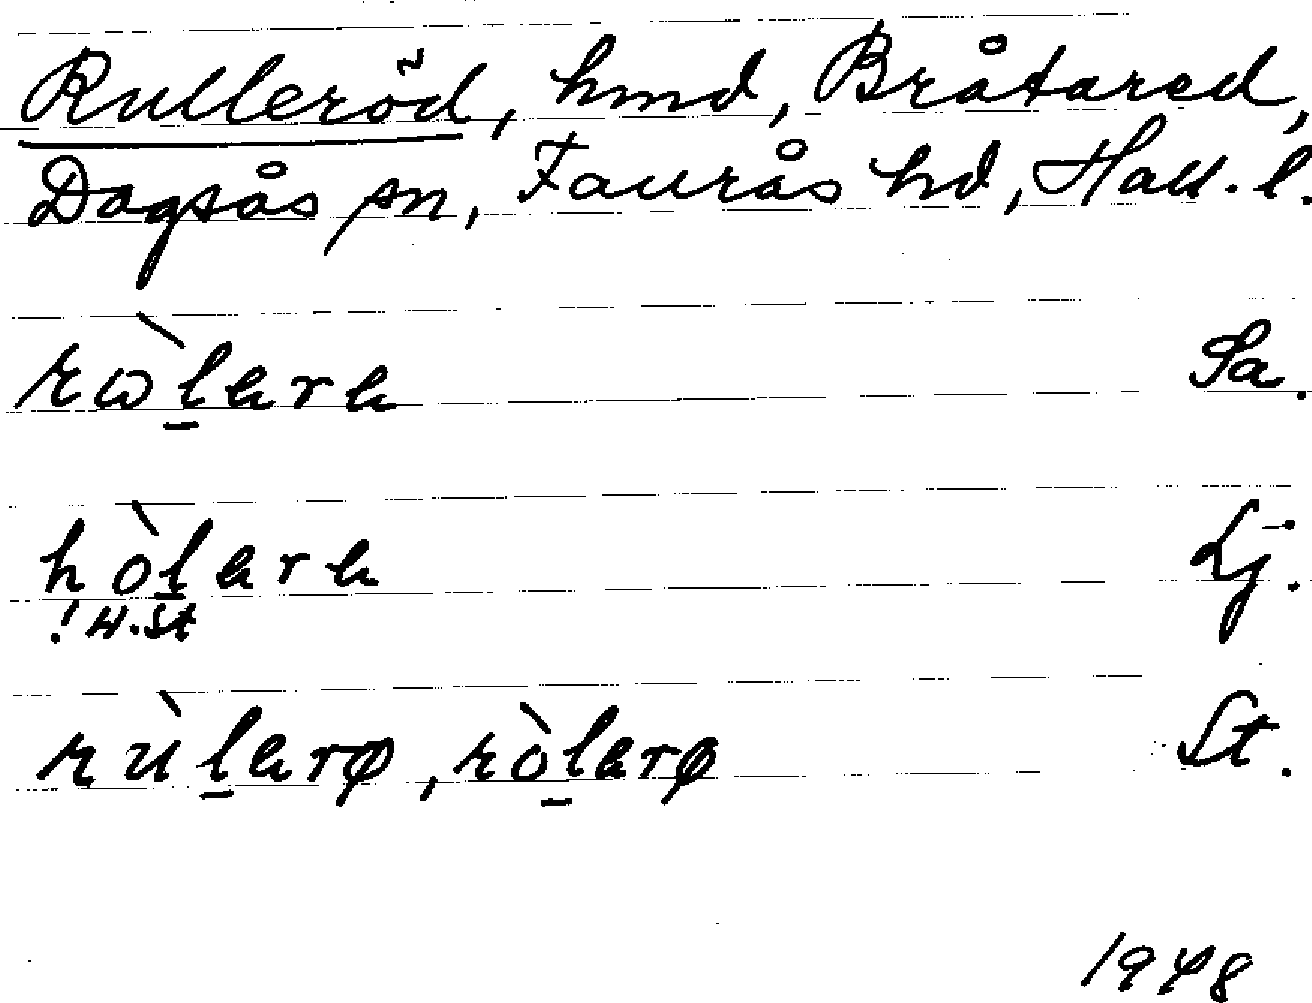 Rulleröd, hmd, Bråtared,
Dagsås sn, Faurås hd, Hall. l.
rɷ̀lɐrɐ Sa.
hòlɐrɐ Lj.
! H.St
rùlɐrø, ròlɐrø St.
1948